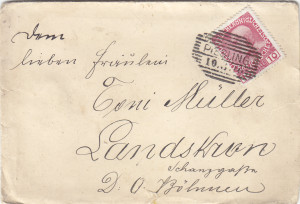 Dem
lieben Fräulein
Toni Müller
Landskron
Schanzgasse
D. O. Böhmen
PIESLING
10